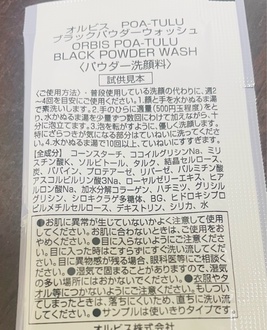 オルビス POA-TULU
ブラックパウダーウォッシュ
ORBIS POA-TULU
BLACK POWDER WASH
〈パウダー洗顔料〉
試供見本
〈ご使用方法〉・普段使用している洗顔の代わりに、週2
〜4回を目安にご使用ください。1.顔と手を水かぬるま湯
で素洗いします。2.手のひらに適量(500円玉程度)をと
り、水かぬるま湯を少量ずつ数回にわけて加えながら、十
分に泡立てます。3.泡を転がすように、優しく洗います。
特にざらつきが気になる部分はていねいに洗ってくださ
い。4.水かぬるま湯で10回以上、ていねいにすすぎます。
【全成分】 コーンスターチ、ココイルグリシンNa、ミリ
スチン酸K、ソルビトール、タルク、結晶セルロース、
炭、パパイン、プロテアーゼ、リパーゼ、パルミチン酸
アスコルビルリン酸3Na、ローヤルゼリーエキス、ヒア
ルロン酸Na、加水分解コラーゲン、ハチミツ、グリシル
グリシン、シロキクラゲ多糖体、BG、セルロース、ヒドロキシプロ
ピルメチルセルロース、デキストリン、シリカ、水
●お肌に異常が生じていないかよく注意して使用
してください。お肌に合わないときは、ご使用をお
やめください。●目に入らないようにご注意くださ
い。目に入った時はこすらずにすぐ洗い流してくださ
い。目に異物感が残る場合、眼科医等にご相談く
ださい。●湿気で固まることがありますので、湿気
の多い場所にはおかないでください。●衣服やタ
オル等につかないようにご注意ください。もしつい
てしまったときは、落ちにくいため、直ちに洗い流し
てください。●サンプルは使いきりタイプです
オルビス株式会社